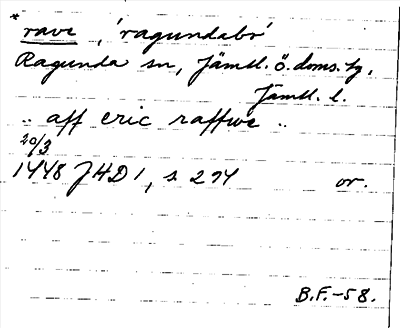 * rave, 'ragundabo'
Ragunda sn, Jämtl. ö. doms. tg,
Jämtl. l.
.. aff eric raffwe ..
20/3
1448 JHD 1, s. 274 or.
B.F.-58.